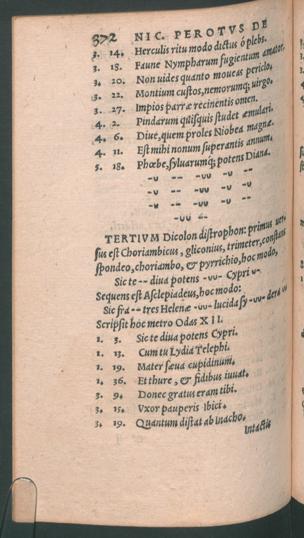 372 NIC. PEROTVS DE
3. 14. Herculis ritu modo dictus ô plebs.
3. 18. Faune Nympharum fugientum amator.
3. 20. Non uides quanto moueas periclo.
3. 22. Montium custos, nemorumq; uirgo.
3. 27. Impios parræ recinentis omen.
4. 2. Pindarum quisquis studet æmulari.
4. 6. Diue, quem proles Niobea magnæ.
4. 11. Est mihi nonum superantis annum.
5. 18. Phœbe, syluarumq; potens Diana.
-u -- -uu -u --
-u -- -uu -u --
-u -- -uu -u --
-uu --
TERTIVM Dicolon distrophon: primus uer-
sus est Choriambicus, gliconius, trimeter, constans
spondeo, choriambo, & pyrrichio, hoc modo,
Sic te -- diua potens -uu- Cypri u-
Sequens est Asclepiadeus, hoc modo:
Sic fra -- tres Helenæ -uu- lucida sy -uu- dera uu
Scripsit hoc metro Odas XII.
1. 3. Sic te diua potens Cypri.
1. 13. Cum tu Lydia Telephi.
1. 19. Mater sæua cupidinum.
1. 36. Et thure, & fidibus iuuat.
3. 9. Donec gratus eram tibi.
3. 15. Vxor pauperis Ibici.
3. 19. Quantum distat ab Inacho.
Intactis